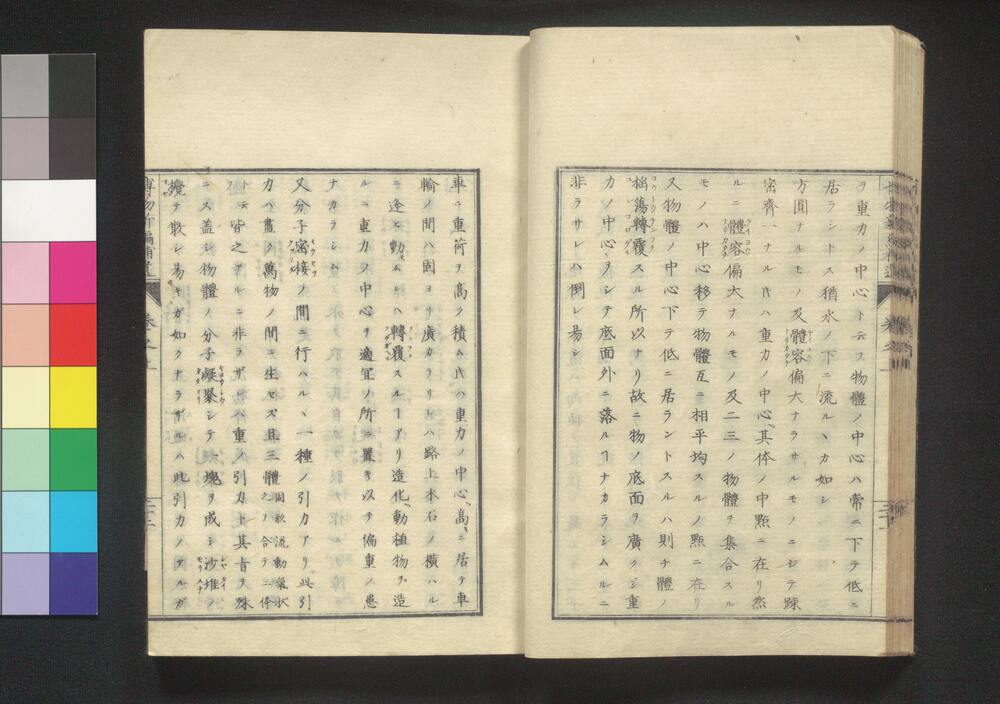 ヲ重力ノ中心ト云フ物體ノ中心ハ常ニ下テ低ニ
居ラントス猶水ノ下ニ流ルヽカ如シ
方圓ナルモノ及體容偏大ナラサルモノニシテ踈
密齊一ナル𪜈ハ重力ノ中心其体ノ中㸃ニ在リ然
ルニ體容偏大ナルモノ及二三ノ物體ヲ集合スル
モノハ中心移テ物體互ニ相平均スルノ㸃ニ在リ
又物體ノ中心下テ低ニ居ラントスルハ則チ體ノ
搖蕩轉覆スル所以ナリ故ニ物ノ底面ヲ廣クシ重
力ノ中心ヲシテ底面外ニ落ルヿナカラシムルニ
非ラサレハ倒レ易シ
車ニ重荷ヲ高ク積ム𪜈ハ重力ノ中心高ニ居テ車
輪ノ間ハ固ヨリ廣カラリレハ路上木石ノ横ハル
ニ逢ヒ動モスレハ轉覆スルヿアリ造化動植物ヲ造
ルニ重力ヲ中心ヲ適宜ノ所ニ置キ以テ偏重ノ患
ナカラシム
又分子密接ノ間ニ行ハルヽ一種ノ引力アリ此引
力ハ盡ク萬物ノ間ニ生セズ且三體固形流動氣状之ヲ合テ三体
ト云フ皆之アルニ非ラザレハ重ノ引力ト其旨ヲ殊
ニス蓋シ物體ノ分子凝聚シテ一塊ヲ成シ沙堆ノ
攪テ散シ易キガ如クナラザルハ此引力ノアルガ
博物新編補遺
卷之上